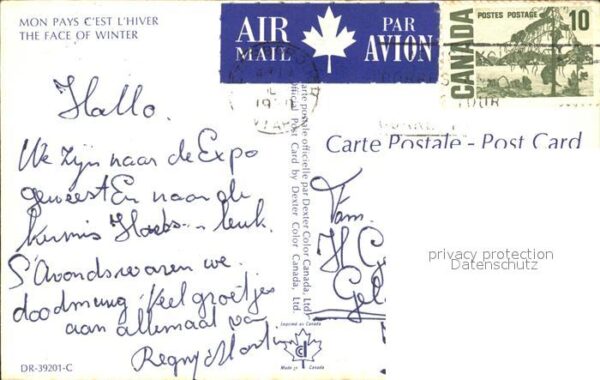 MON PAYS C'EST L'HIVER
THE FACE OF WINTER
AIR MAIL
PAR AVION
CANADA
POSTES POSTAGE
10
Hallo.
We zijn naar de Expo
geweest En naar de
kermis ... leuk.
S'Avonds waren we
doodmoug. Veel groetjes
aan allemaal van
Carte postale officielle par Dexter Color Canada, Ltd.
Official Post Card by Dexter Color Canada, Ltd.
Imprimé au Canada
Made in Canada
Carte Postale - Post Card
Fam.
H
privacy protection
Datenschutz
DR-39201-C